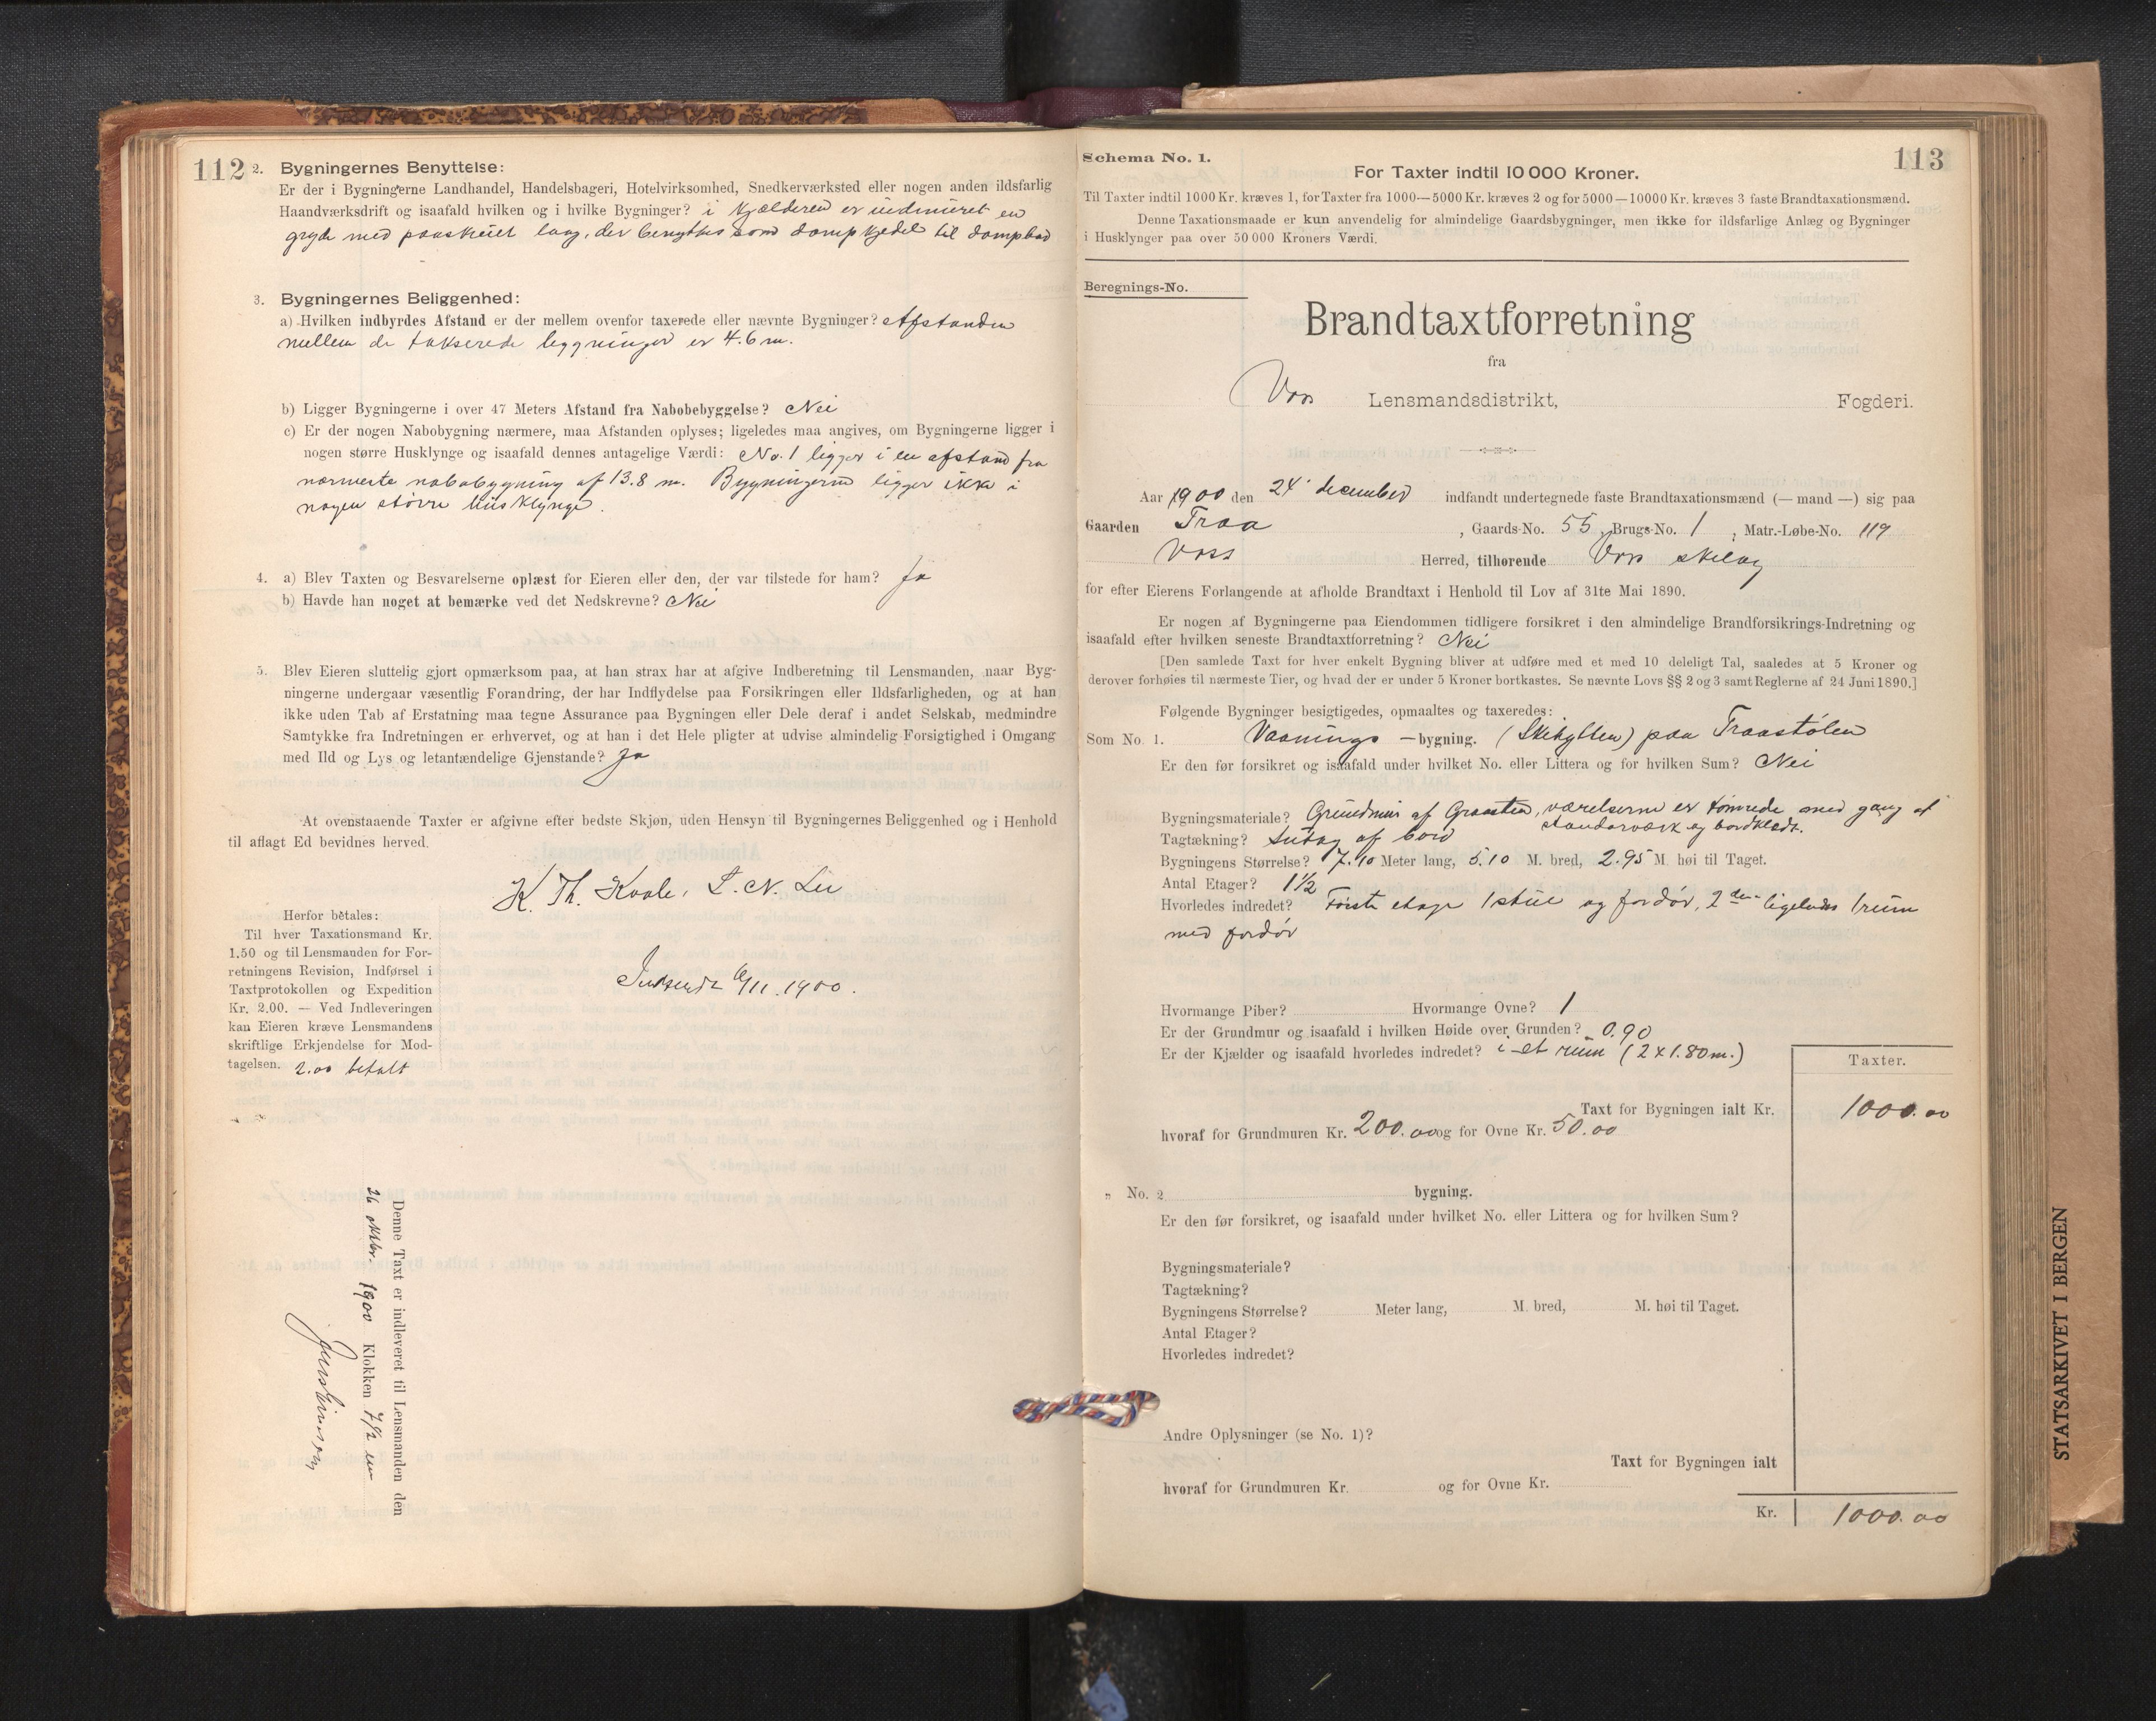 112
2. Bygningernes Benyttelse:
Er der i Bygningerne Landhandel, Handelsbageri, Hotelvirksomhed, Snedkerværksted eller nogen anden ildsfarlig
Haandværksdrift og isaafald hvilken og i hvilke Bygninger? i Kjælderen er indmuret en
gryde med paaskruet laag, der benyttes som dampkjedel til dampbad
3. Bygningernes Beliggenhed:
a) Hvilken indbyrdes Afstand er der mellem ovenfor taxerede eller nævnte Bygninger? Afstanden
mellem de takserede bygninger er 4.6 m.
b) Ligger Bygningerne i over 47 Meters Afstand fra Nabobebyggelse? Nei
c) Er der nogen Nabobygning nærmere, maa Afstanden oplyses; ligeledes maa angives, om Bygningerne ligger i
nogen større Husklynge og isaafald dennes antagelige Værdi: No. 1 ligger i en afstand fra
nærmeste nabobygning af 13.8 m. Bygningerne ligger ikke i
nogen større husklynge.
4. a) Blev Taxten og Besvarelserne oplæst for Eieren eller den, der var tilstede for ham? Ja
b) Havde han noget at bemærke ved det Nedskrevne? Nei
5. Blev Eieren sluttelig gjort opmærksom paa, at han strax har at afgive Indberetning til Lensmanden, naar Byg-
ningerne undergaar væsentlig Forandring, der har Indflydelse paa Forsikringen eller Ildsfarligheden, og at han
ikke uden Tab af Erstatning maa tegne Assurance paa Bygningen eller Dele deraf i andet Selskab, medmindre
Samtykke fra Indretningen er erhvervet, og at han i det Hele pligter at udvise almindelig Forsigtighed i Omgang
med Ild og Lys og letantændelige Gjenstande? Ja
At ovenstaaende Taxter er afgivne efter bedste Skjøn, uden Hensyn til Bygningernes Beliggenhed og i Henhold
til aflagt Ed bevidnes herved.
K. Th. Kvale. L. N. Lie
Herfor betales:
Til hver Taxationsmand Kr.
1.50 og til Lensmanden for For-
retningens Revision, Indførsel i
Taxtprotokollen og Expedition
Kr. 2.00. — Ved Indleveringen
kan Eieren kræve Lensmandens
skriftlige Erkjendelse for Mod-
tagelsen. 2.00 betalt
Indsendt 6/11. 1900.
Denne Taxt er indleveret til Lensmanden den
26 oktbr. 1900 Klokken 7 1/2 em
113
Schema No. 1.
For Taxter indtil 10 000 Kroner.
Til Taxter indtil 1000 Kr. kræves 1, for Taxter fra 1000—5000 Kr. kræves 2 og for 5000—10000 Kr. kræves 3 faste Brandtaxationsmænd.
Denne Taxationsmaade er kun anvendelig for almindelige Gaardsbygninger, men ikke for ildsfarlige Anlæg og Bygninger
i Husklynger paa over 50 000 Kroners Værdi.
Beregnings-No.
Brandtaxtforretning
fra
Voss Lensmandsdistrikt, Fogderi.
Aar 1900 den 24' december indfandt undertegnede faste Brandtaxationsmænd (— mand —) sig paa
Gaarden Traa, Gaards-No. 55, Brugs-No. 1, Matr.-Løbe-No. 119
Voss Herred, tilhørende Voss skilag
for efter Eierens Forlangende at afholde Brandtaxt i Henhold til Lov af 31te Mai 1890.
Er nogen af Bygningerne paa Eiendommen tidligere forsikret i den almindelige Brandforsikrings-Indretning og
isaafald efter hvilken seneste Brandtaxtforretning? Nei
[Den samlede Taxt for hver enkelt Bygning bliver at udføre med et med 10 deleligt Tal, saaledes at 5 Kroner og
derover forhøies til nærmeste Tier, og hvad der er under 5 Kroner bortkastes. Se nævnte Lovs §§ 2 og 3 samt Reglerne af 24 Juni 1890.]
Følgende Bygninger besigtigedes, opmaaltes og taxeredes:
Som No. 1. Vaanings —bygning. (Skihytten) paa Traastølen
Er den før forsikret og isaafald under hvilket No. eller Littera og for hvilken Sum? Nei
Bygningsmateriale? Grundmur af Graasten, værelserne er tømrede med gang af
standerværk og bordklædt.
Tagtækning? Sutag af bord
Bygningens Størrelse? 7.10 Meter lang, 5.10 M. bred, 2.95 M. høi til Taget.
Antal Etager? 1 1/2
Hvorledes indredet? Første etage 1 stue og fordør, 2den ligeledes 1 rum
med fordør
Hvormange Piber? Hvormange Ovne? 1
Er der Grundmur og isaafald i hvilken Høide over Grunden? 0.90
Er der Kjælder og isaafald hvorledes indredet? i et rum (2 x 1.80 m.)
Taxter.
Taxt for Bygningen ialt Kr. 1000.00
hvoraf for Grundmuren Kr. 200.00 og for Ovne Kr. 50.00
„ No. 2 bygning.
Er den før forsikret, og isaafald under hvilket No. eller Littera og for hvilken Sum?
Bygningsmateriale?
Tagtækning?
Bygningens Størrelse? Meter lang, M. bred, M. høi til Taget.
Antal Etager?
Hvorledes indredet?
Andre Oplysninger (se No. 1)?
Taxt for Bygningen ialt
hvoraf for Grundmuren Kr. og for Ovne Kr.
Kr. 1000.00
STATSARKIVET I BERGEN